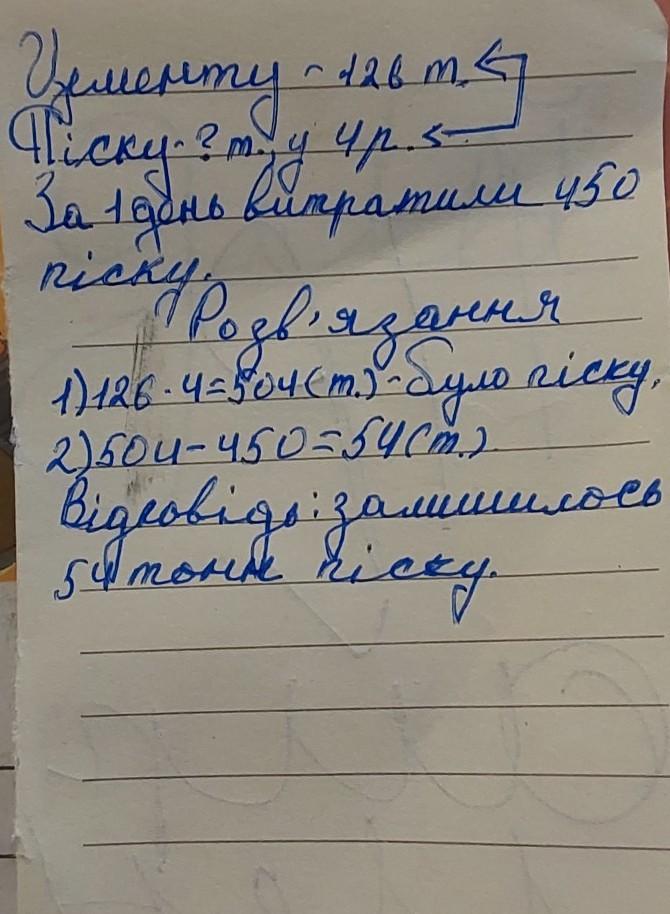 Цементу - 126 т.
Піску - ? т., у 4 р.
За 1 день витратили 450
піску.
Розв'язання
1) 126 · 4 = 504 (т.) - було піску.
2) 504 - 450 = 54 (т.)
Відповідь: залишилось
54 тонн піску.